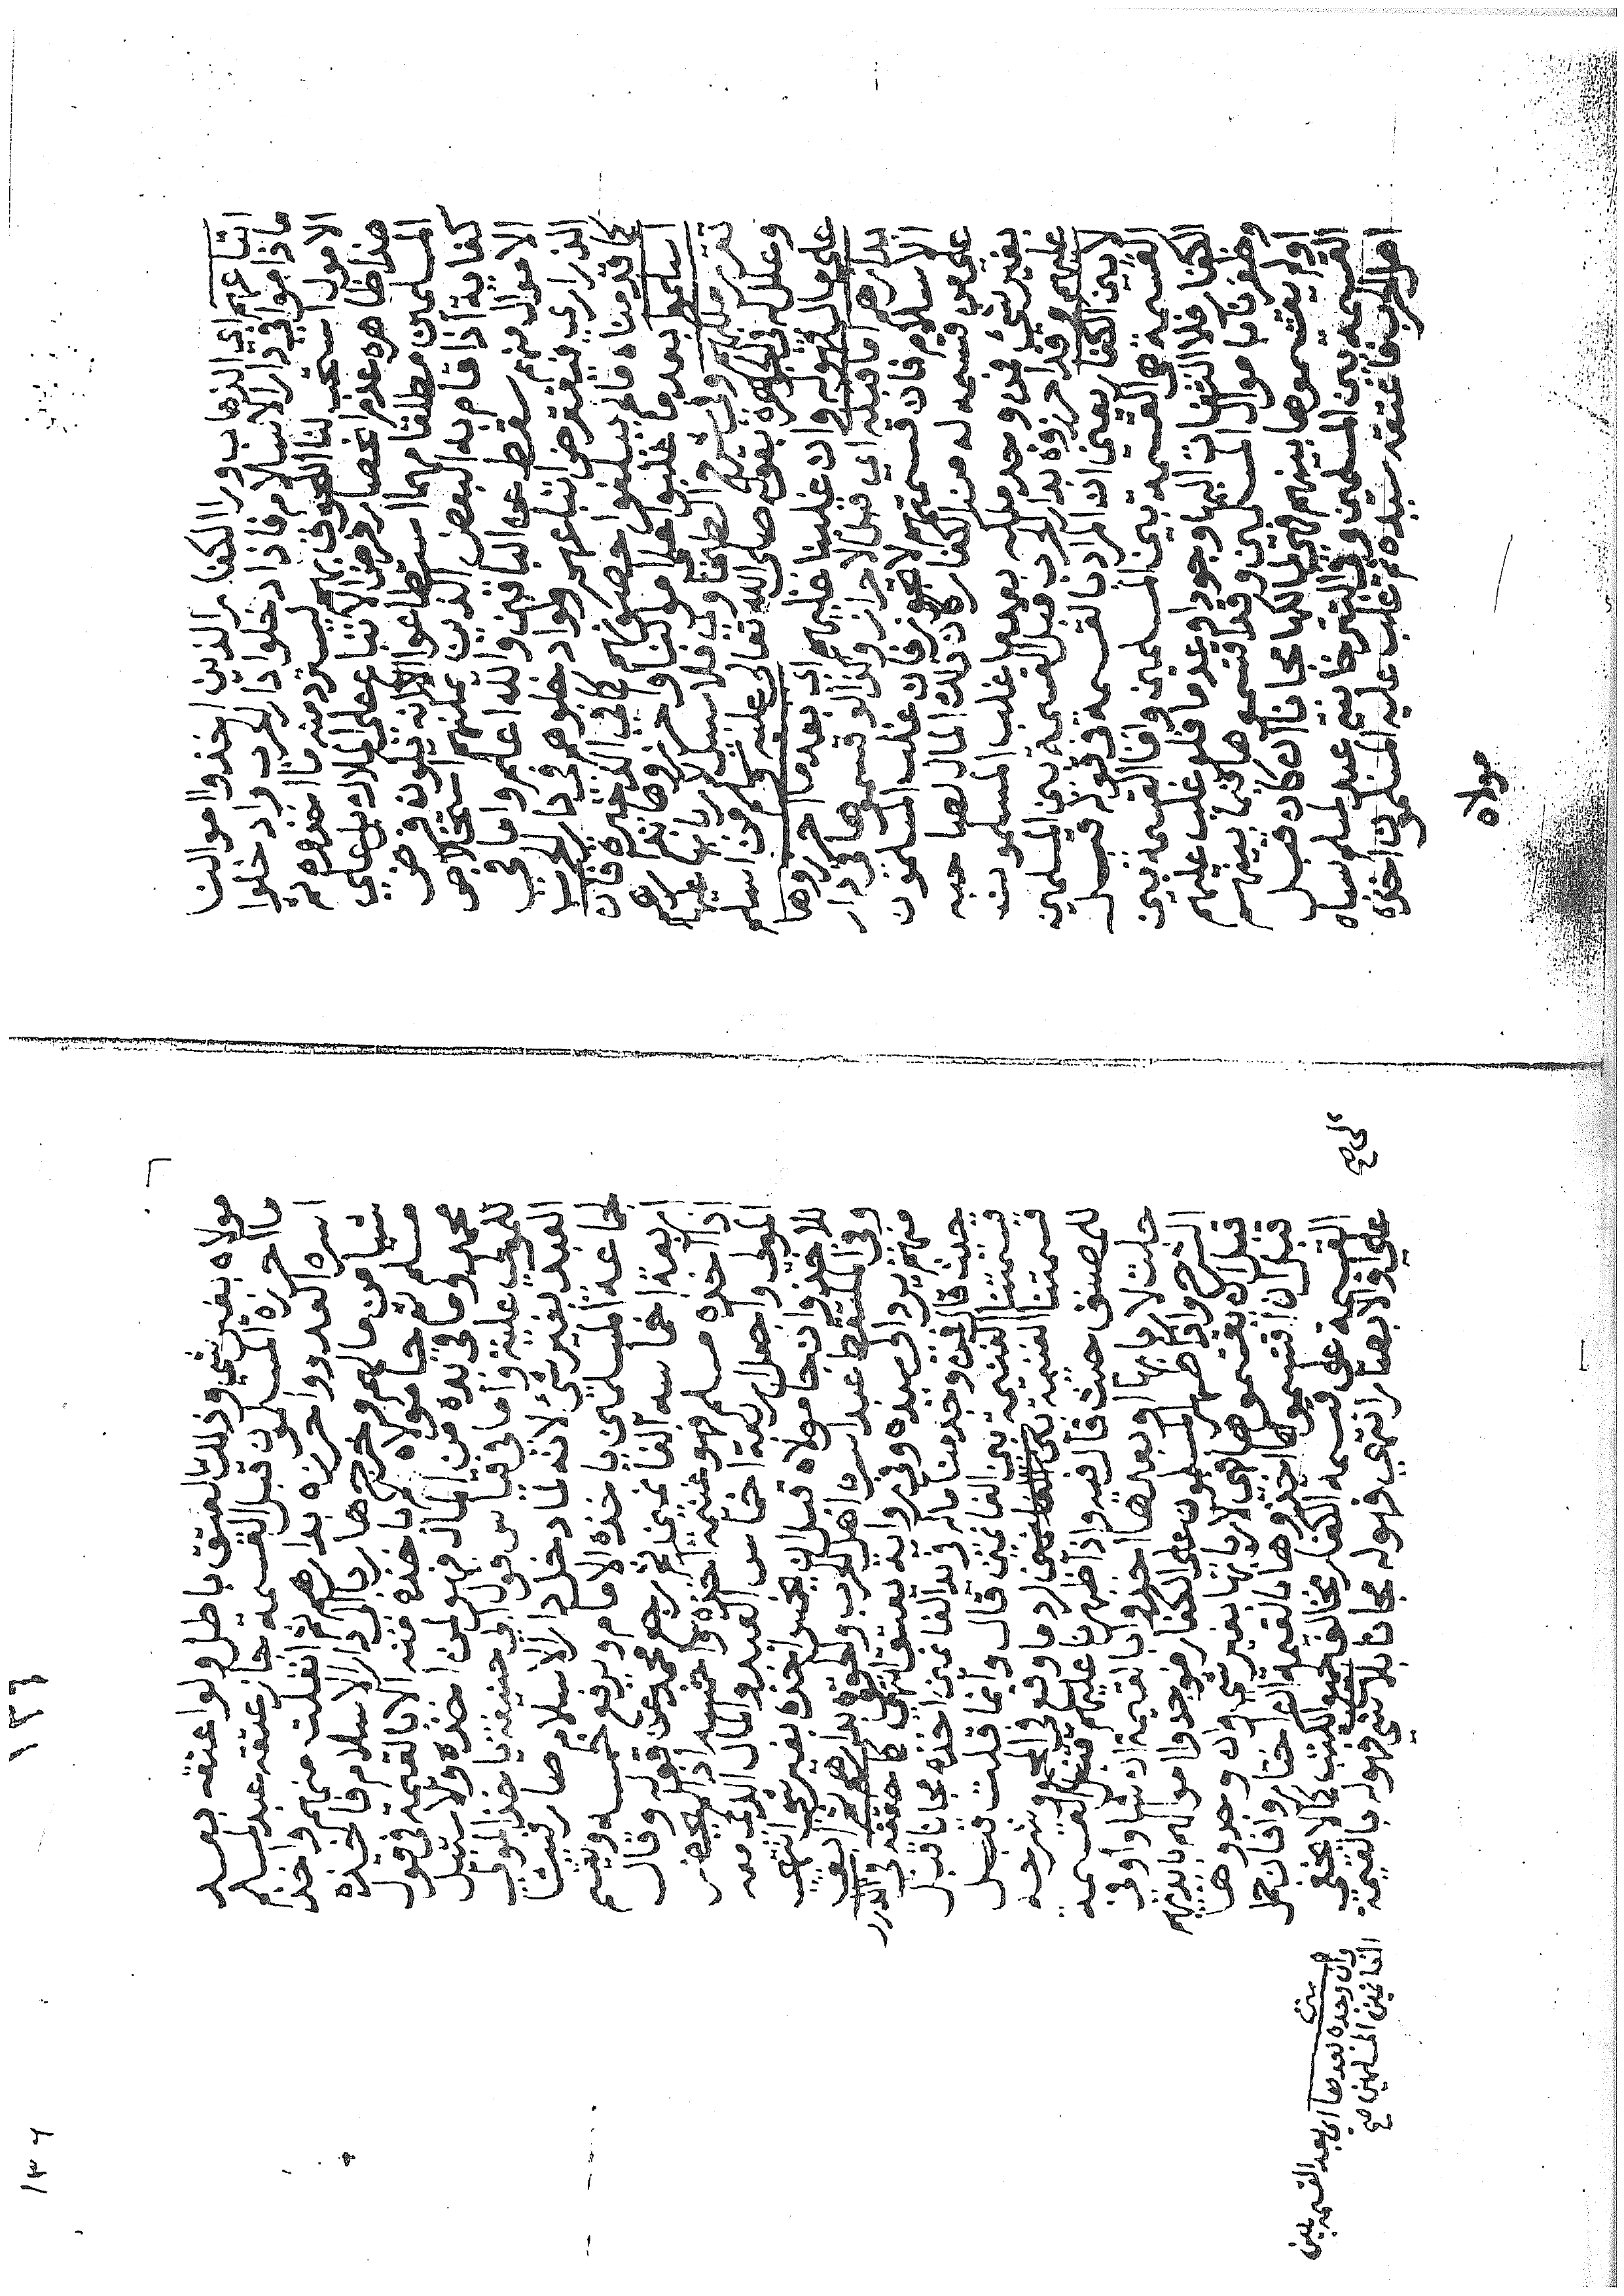 اتباعهم اي الذهاب ورا الكفار الذين اخذوا اموالنا
ماداموا في دار الاسلام فاذا دخلوا دار الحرب وادخلوا
الاموال استحب لنا اللحوق بهم ليسترد منهم ما اخذوه ثم
هذا ظاهره عدم فرض الاتباع على الملاك بل على
المسلمين مطلقا مهما استطاعوا لانه يكون فرض
كفاية اذا قام به البعض الذين يمكنهم استخلاص
الاموال منهم سقط عن الباقين والله اعلم واما في
الذراري فيفترض اتباعهم ولو ادخلوهم في دار الحرب
كما قدمناه مالم يبلغوا حصونهم كما في الذخيرة فان
اسلموا بعد ما غلبوا على اموالنا واحرزوها بدارهم
تقرر ملكهم وفي شرح الطحاوي فلا سبيل لاربابها عليهم
وعلله في الجوهرة بقوله صلى الله تعالى عليه وسلم من اسلم
على مال فهو له وان غلبنا عليهم اي بعد ما احرزوها
بدارهم اما قبله اي قبل الاحراز ولو اقتسموها في دار
الاسلام فان قسمتهم لا تجوز فان غلب المسلمون
على من قسمه له من الكفار كان ذلك المال لصاحبه
بغير شيء فمن وجد ملكه بعد ما غلب المسلمون
عليهم وقد احرزوه بدار الحرب قبل القسمة بين المسلمين
لا بين الكفار يعني ان المراد بالقسمة في قوله قبل
القسمة هي القسمة بين المسلمين واما القسمة بين
الكفار فلا التفات اليها وجودا وعدما فلو غلب عليهم
وظفرنا باموال المسلمين وقد اقتسموها فيما بينهم
او لم يقتسموها بينهم فهي لمالكها مجانا ان كان قبل
القسمة بين المسلمين وفي التترخانية عبد لمسلم سباه
اهل الحرب فاعتقه سيده ثم غلب عليه المسلمون اخذه
مولاه
مولاه بغير شي وذلك العتق باطل ولو اعتقه بعد
ما احرزه المسلمون قبل القسمة جاز عتقه عبد لمسلم
اسره العدو واحرزه بدارهم ثم انفلت منهم واخذ
شيا من مالهم وخرج هاربا الى دار الاسلام فاخذه
مسلم ثم جا مولاه ياخذه منه الا بالقيمة في قول
محمد وما في يده من المال فهو لمن اخذه ولا سبيل
للمولى عليه واما في قياس قول ابي حنيفة ياخذ المولى
العبد بغير شيء لانه لما دخل دار الاسلام صار فيئا
لجماعة المسلمين ياخذه الامام ويرفع خمسه ويقسم
اربعة اخماسه الغانمين ثم رجع محمد عن قوله وقال
اذا اخذه مسلم فهو غنيمة اخذه واخمسه اذا لم يحضر
المولى واجعل اربعة اخماس العبد والمال الذي معه
للاخذ وان جا مولاه قبل ان يخمس اخذه بغير شي انتهى
وفي الملتقط عبد اسره اهل الحرب ولحقوه بدارهم ثم ابق
منهم يرد الى سيده وفي رواية يعتق انتهى كما حققه في الدرر
حيث قال فمن وجد منا ماله في يد الغانمين اخذه مجانا قبل
قسمتنا الغنيمة بين الغانمين قال وانما قلت قبل
قسمتنا الغنيمة بين المسلمين لرد ما وقع في المجمع وشرحه
للمصنف حيث قال فيه واذا ظهرنا عليهم قبل القسمة
حلت لاربابها او بعدها اخذوها بالقيمة ان شاوا وفي
الشرح واذا ظهر المسلمون على الكفار فوجدوا اموالهم بايديهم
قبل ان يقتسموها فهي لاربابها بغير شي وان وجدوها
قبل ان اقتسموها اخذوها بالقيمة ان اختاروا فان حمل
القسمة على قسمة الكفار مخالف لجميع الكتب كما لا يخفى
على اولي الابصار انتهى فهو له مجانا بلا شي فهو له بالقيمة
وان وجده بعدها اي بعد القسمة بين
الغانمين المسلمين صح
١٣٦
١٣٦